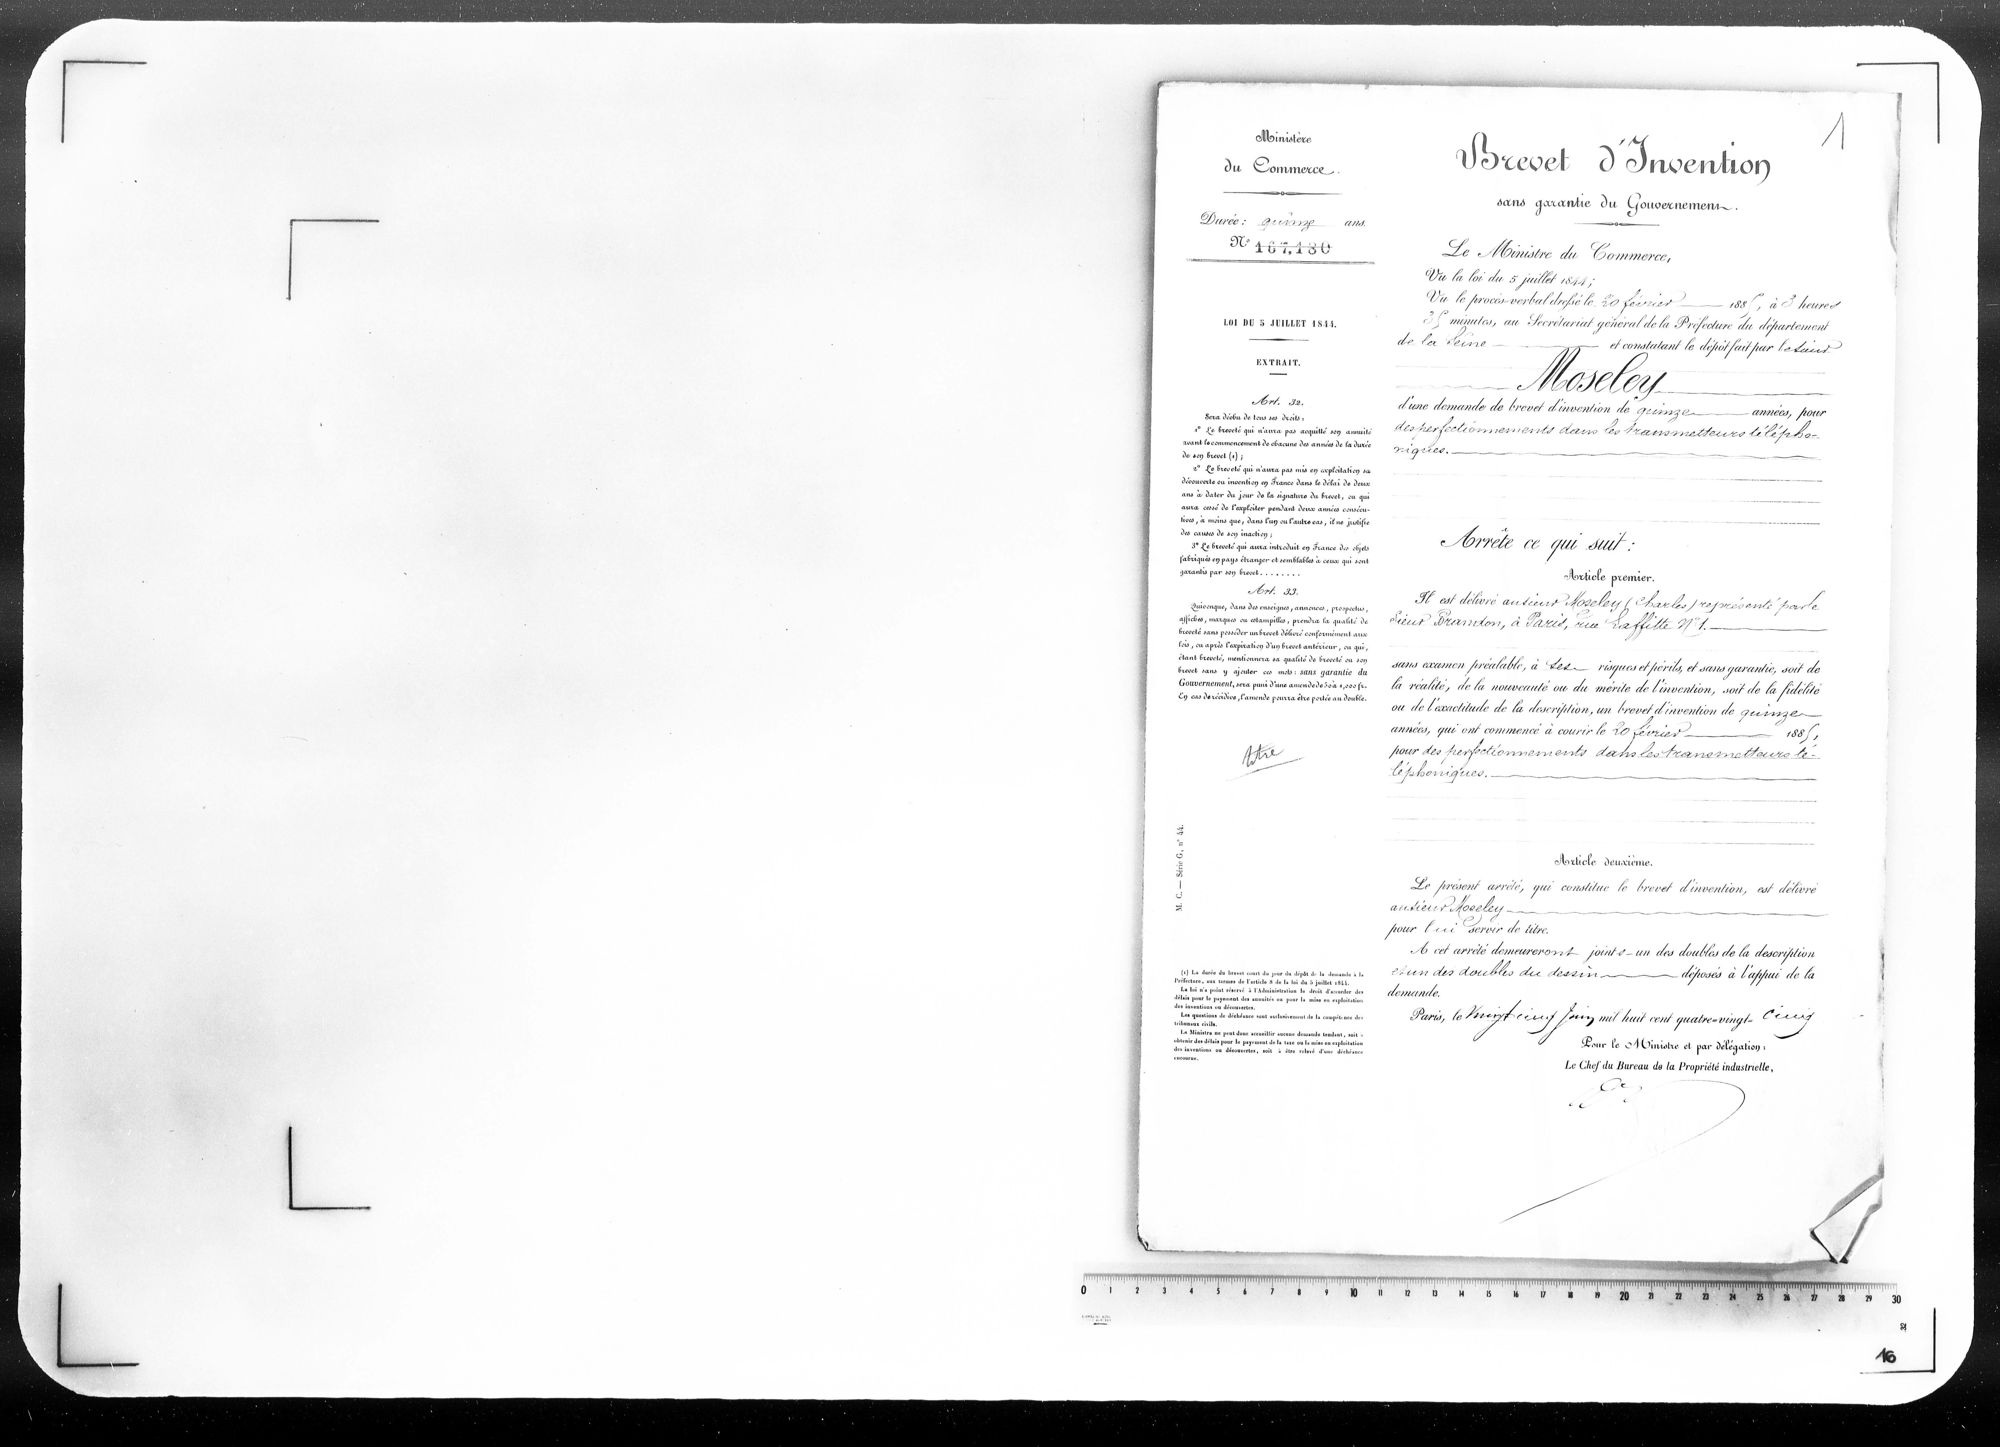 Ministère
du Commerce.
Durée : quinze ans.
N° 167,130
LOI DU 5 JUILLET 1844.
EXTRAIT.
Art. 32.
Sera déchu de tous ses droits :
1° Le breveté qui n'aura pas acquitté son annuité
avant le commencement de chacune des années de la durée
de son brevet (1) ;
2° Le breveté qui n'aura pas mis en exploitation sa
découverte ou invention en France dans le délai de deux
ans à dater du jour de la signature du brevet, ou qui
aura cessé de l'exploiter pendant deux années consécu-
tives, à moins que, dans l'un ou l'autre cas, il ne justifie
des causes de son inaction ;
3° Le breveté qui aura introduit en France des objets
fabriqués en pays étranger et semblables à ceux qui sont
garantis par son brevet........
Art. 33.
Quiconque, dans des enseignes, annonces, prospectus,
affiches, marques ou estampilles, prendra la qualité de
breveté sans posséder un brevet délivré conformément aux
lois, ou après l'expiration d'un brevet antérieur, ou qui,
étant breveté, mentionnera sa qualité de breveté ou son
brevet sans y ajouter ces mots : sans garantie du
Gouvernement, sera puni d'une amende de 50 à 1,000 fr.
En cas de récidive, l'amende pourra être portée au double.
titre
M. C. — Série G, n° 44.
(1) La durée du brevet court du jour du dépôt de la demande à la
Préfecture, aux termes de l'article 8 de la loi du 5 juillet 1844.
La loi n'a point réservé à l'Administration le droit d'accorder des
délais pour le payement des annuités ou pour la mise en exploitation
des inventions ou découvertes.
Les questions de déchéance sont exclusivement de la compétence des
tribunaux civils.
Le Ministre ne peut donc accueillir aucune demande tendant, soit à
obtenir des délais pour le payement de la taxe ou la mise en exploitation
des inventions ou découvertes, soit à être relevé d'une déchéance
encourue.
1
Brevet d'Invention
sans garantie du Gouvernement.
Le Ministre du Commerce,
Vu la loi du 5 juillet 1844 ;
Vu le procès-verbal dressé le 20 février 1885, à 3 heures
35 minutes, au Secrétariat général de la Préfecture du département
de la Seine et constatant le dépôt fait par le sieur
Moseley
d'une demande de brevet d'invention de quinze années, pour
des perfectionnements dans les transmetteurs télépho-
niques.
Arrête ce qui suit :
Article premier.
Il est délivré au sieur Moseley (Charles) représenté par le
sieur Brandon, à Paris, rue Laffitte N° 1.
sans examen préalable, à ses risques et périls, et sans garantie, soit de
la réalité, de la nouveauté ou du mérite de l'invention, soit de la fidélité
ou de l'exactitude de la description, un brevet d'invention de quinze
années, qui ont commencé à courir le 20 février 1885,
pour des perfectionnements dans les transmetteurs té-
léphoniques.
Article deuxième.
Le présent arrêté, qui constitue le brevet d'invention, est délivré
au sieur Moseley
pour lui servir de titre.
A cet arrêté demeureront joints un des doubles de la description
et un des doubles du dessin déposés à l'appui de la
demande.
Paris, le vingt cinq Juin mil huit cent quatre-vingt-cinq
Pour le Ministre et par délégation :
Le Chef du Bureau de la Propriété industrielle,
0 1 2 3 4 5 6 7 8 9 10 11 12 13 14 15 16 17 18 19 20 21 22 23 24 25 26 27 28 29 30
16